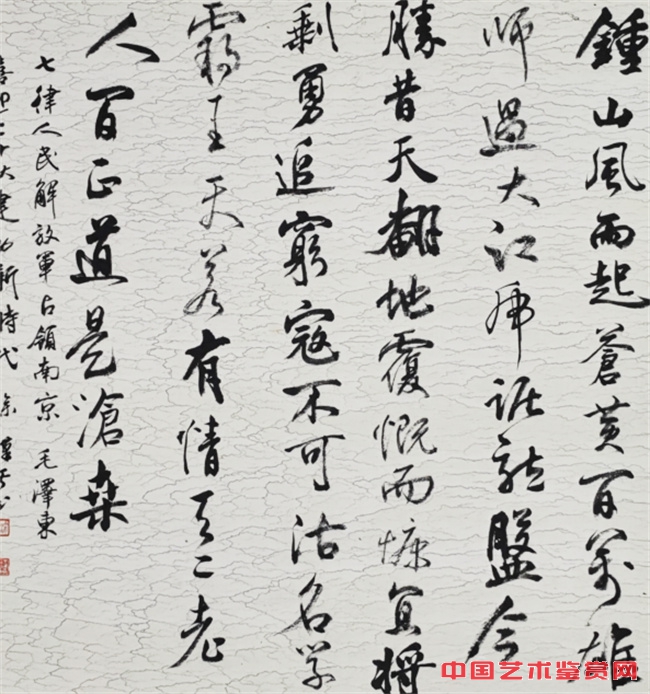 鍾山風雨起蒼黄百萬雄
师過大江虎踞龍盤今
勝昔天翻地覆慨而慷宜將
剩勇追窮寇不可沽名学
霸王天若有情天亦老
人間正道是滄桑
七律人民解放軍占領南京 毛澤東
喜迎二十大建功新時代 徐
中国艺术鉴赏网